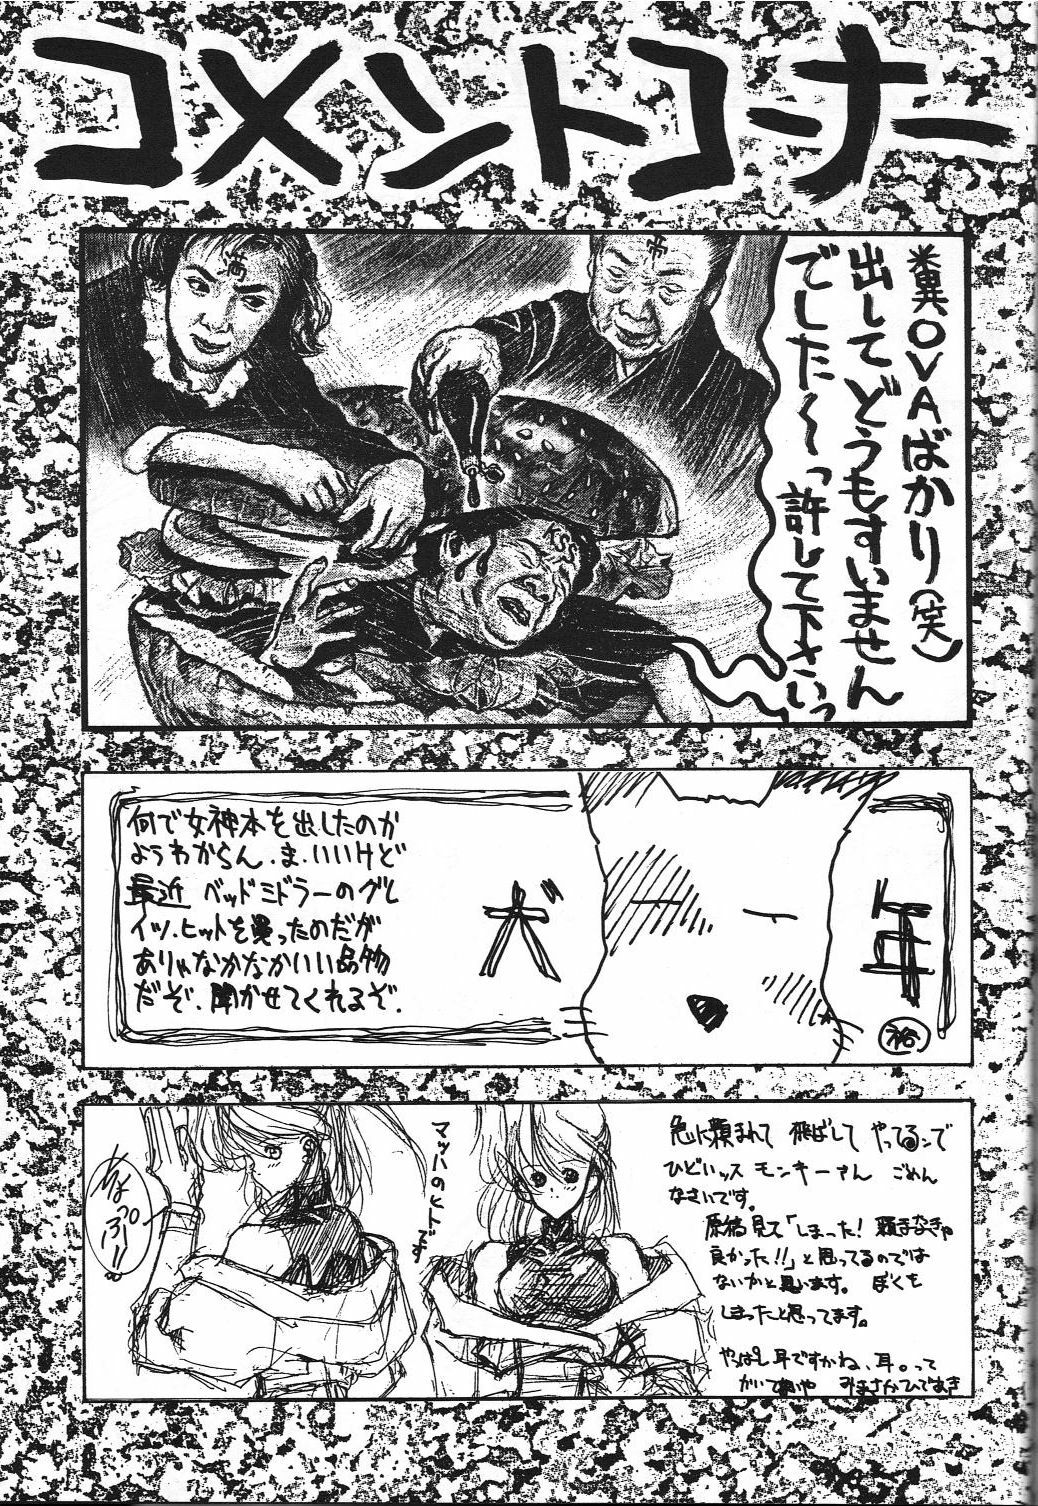 コメントコーナー
糞OVAばかり(笑)
出してどうもすいません
でした〜〜っ許して下さいっ
何で女神本を出したのか
ようわからん.ま.いいけど
最近 ベッドミドラーのグレ
イツ.ヒットを買ったのだが
ありゃなかなかいい品物
だぞ.聞かせてくれるぞ.
裕
マッハのヒトです
急に頼まれて 飛ばして やってるンで
ひどいッス モンキーさん ごめん
なさいです。
原稿見て「しまった! 頼まなきゃ
良かった!!」と思ってるのでは
ないかと思います。 ぼくも
しまったと思ってます。
やっぱし耳ですかね、耳。って